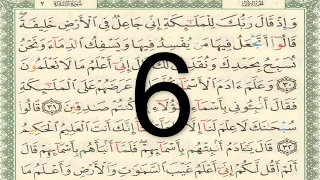 وَإِذْ قَالَ رَبُّكَ لِلْمَلَٰٓئِكَةِ إِنِّي جَاعِلٌ فِي ٱلْأَرْضِ خَلِيفَةً
قَالُوٓا۟ أَتَجْعَلُ فِيهَا مَن يُفْسِدُ فِيهَا وَيَسْفِكُ ٱلدِّمَآءَ وَنَحْنُ
نُسَبِّحُ بِحَمْدِكَ وَنُقَدِّسُ لَكَ قَالَ إِنِّيٓ أَعْلَمُ مَا لَا تَعْلَمُونَ
٣٠ وَعَلَّمَ ءَادَمَ ٱلْأَسْمَآءَ عَرَضَهُمْ عَلَى ٱلْمَلَٰٓئِكَةِ
فَقَالَ أَنۢبِـُٔونِي بِأَسْمَآءِ هَٰٓؤُلَآءِ كُنتُمْ صَٰدِقِينَ ٣١ قَالُوا۟
سُبْحَٰنَكَ لَا عِلْمَ لَنَآ إِلَّا مَا عَلَّمْتَنَآ إِنَّكَ أَنتَ ٱلْعَلِيمُ ٱلْحَكِيمُ
٣٢ قَالَ يَٰٓـَٔادَمُ أَنۢبِئْهُم بِأَسْمَآئِهِمْ فَلَمَّآ أَنۢبَأَهُم بِأَسْمَآئِهِمْ قَالَ
أَلَمْ أَقُل لَّكُمْ إِنِّيٓ أَعْلَمُ غَيْبَ ٱلسَّمَٰوَٰتِ وَٱلْأَرْضِ وَأَعْلَمُ مَا
6